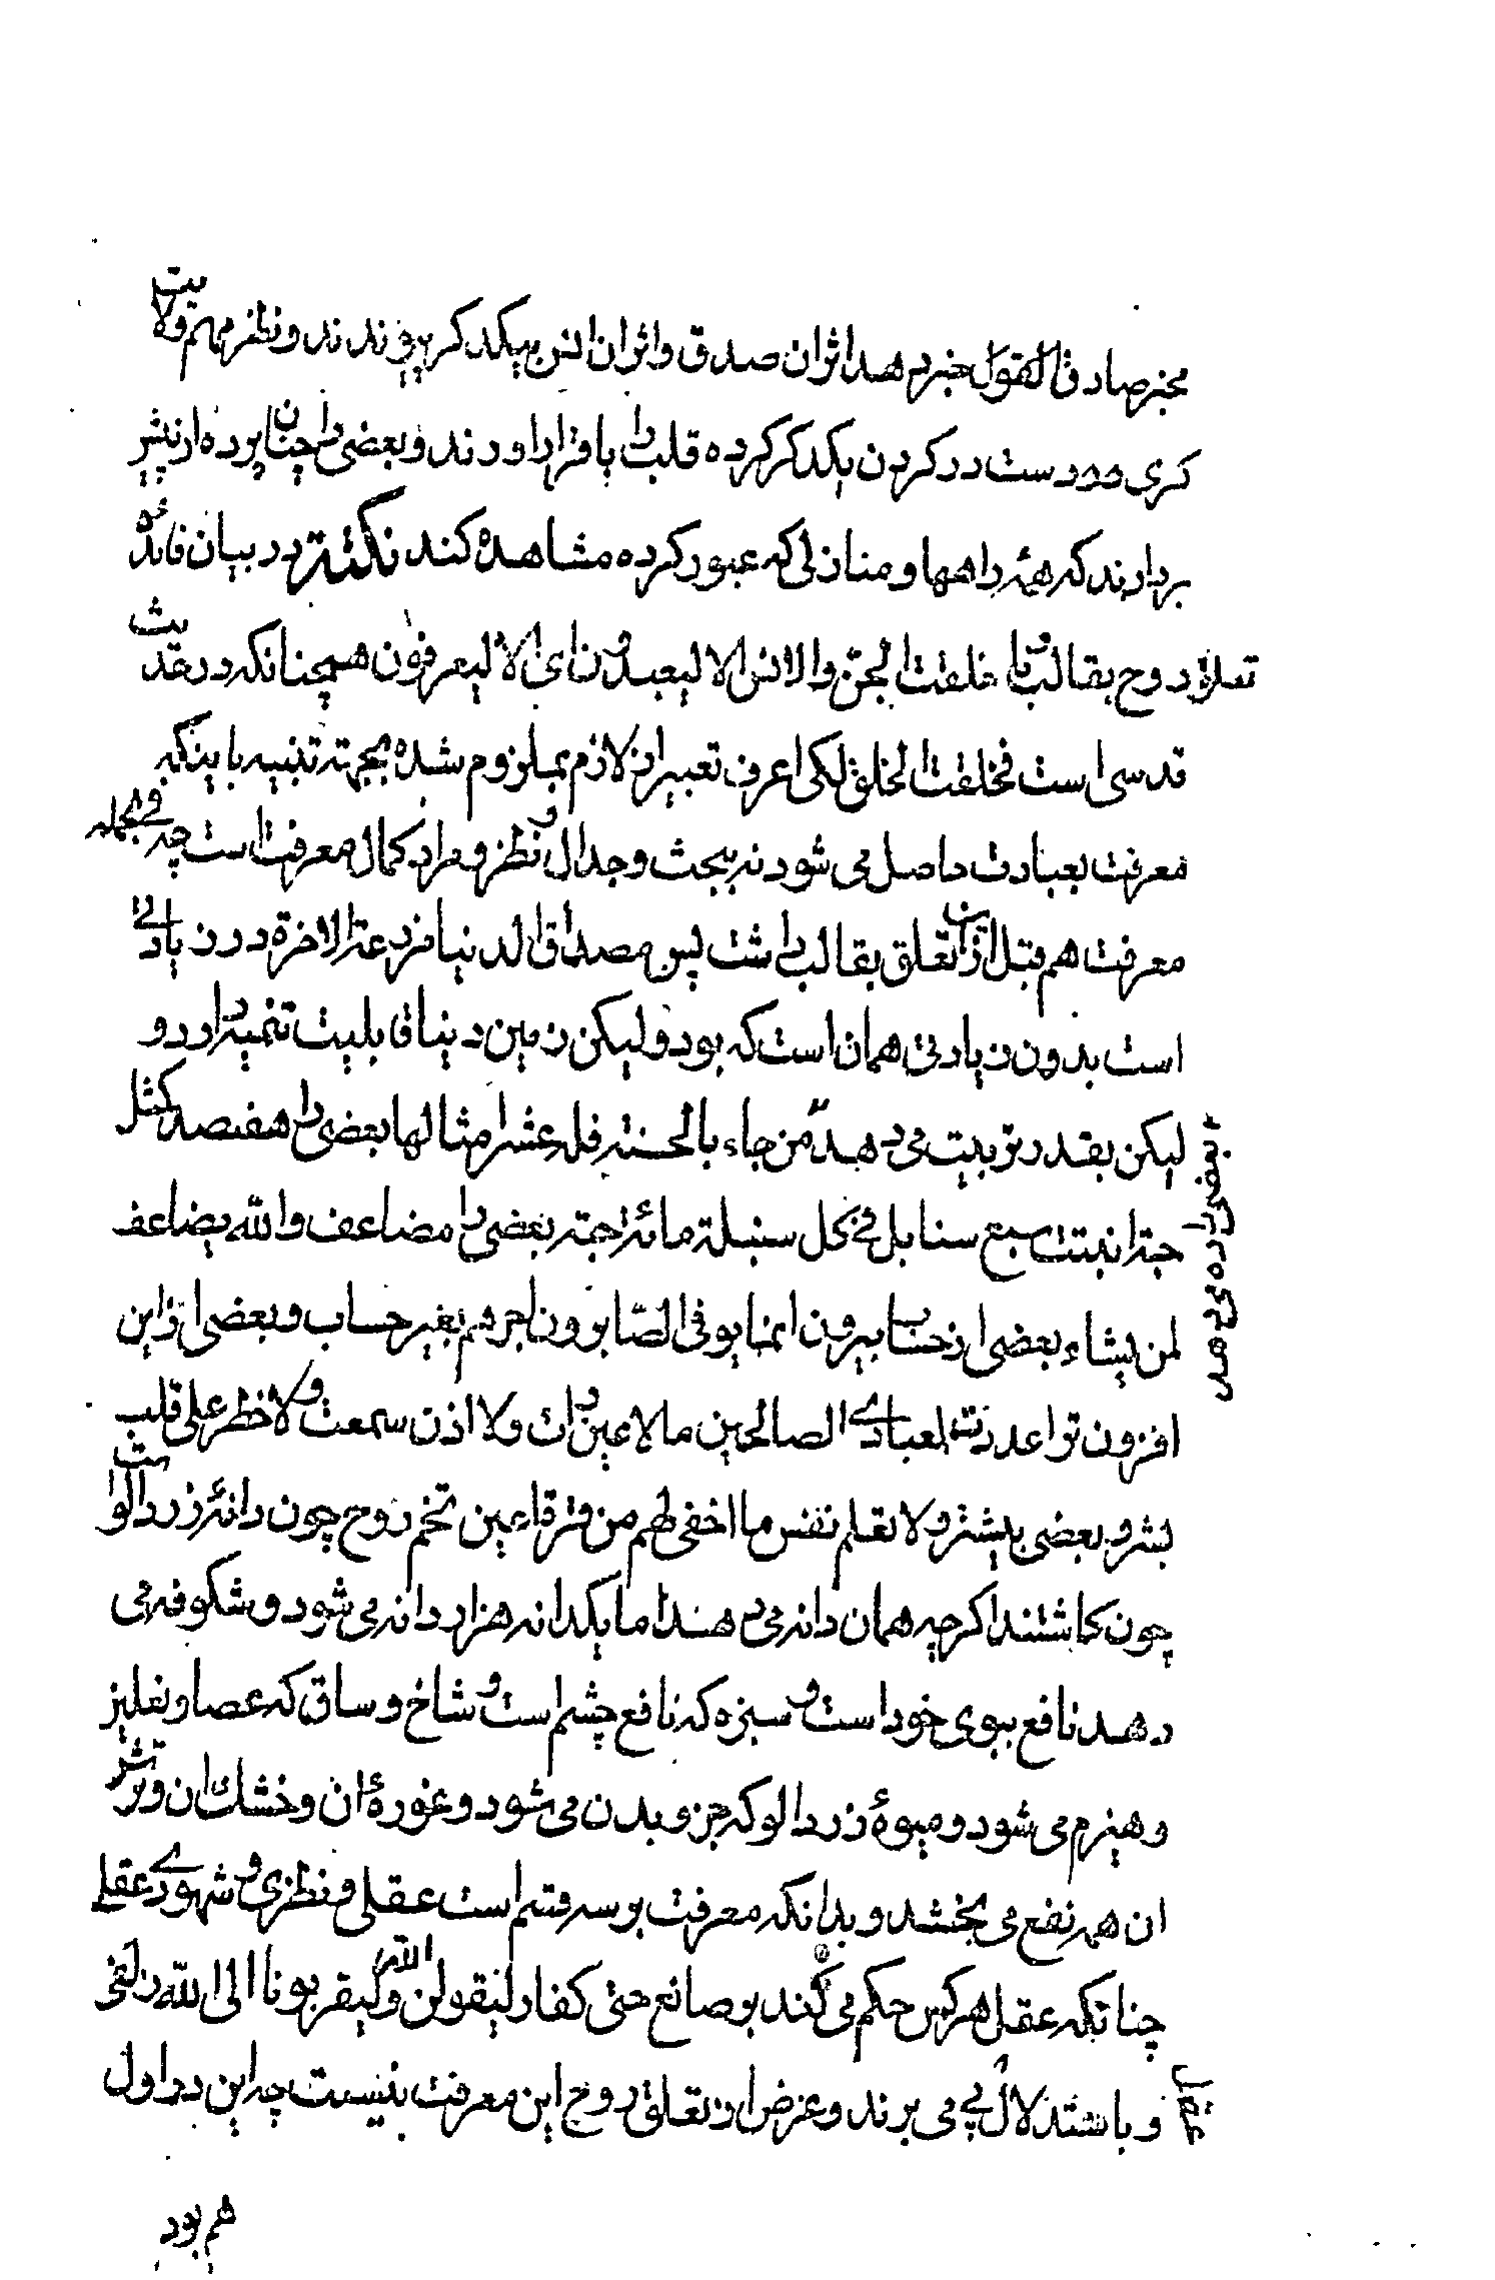 مخبر صادق القول خبر دهد اثران صدق و اثران انس بیکدکر پیوندند و نظر مهم ولایت
کری دو دست در کردن یکدکر کرده قلب را باقرار اورند و بعضی را چنان پرده از پیش
بردارند که همهٔ راهها و منازلی که عبور کرده مشاهده کند نکتة در بیان فائدهٔ
تعلق روح بقالب ما خلقت الجن والانس الا لیعبدون ای الا لیعرفون همچنانکه در حدیث
قدسی است فخلقت الخلق لکی اعرف تعبیر از لازم بملزوم شده بجهة تنبیه باینکه
معرفت بعبادت حاصل می شود نه ببحث و جدال و نظر و مراد کمال معرفت است چه فی الجمله
معرفت هم قبل ازین تعلق بقالب داشت پس مصداق الدنیا مزرعة الاخرة در زیادتی
است بدون زیادتی همان است که بود و لیکن زمین دنیا قابلیت تخمیه دارد و
لیکن بقدر تربیت می دهد من جاء بالحسنة فله عشر امثالها بعضی را هفتصد کمثل
حبة انبتت سبع سنابل فی کل سنبلة مائة حبة بعضی را مضاعف والله یضاعف
لمن یشاء بعضی از حساب بیرون انما یوفی الصابرون اجرهم بغیر حساب و بعضی ازین
افزون تر اعددت لعبادی الصالحین ما لا عین رات ولا اذن سمعت ولا خطر علی قلب
بشر و بعضی بیشتر و لا تعلم نفس ما اخفی لهم من قرة اعین تخم روح چون دانهٔ زردالو است
چون کاشتند اکرچه همان دانه می دهند اما یکدانه هزار دانه می شود و شکوفه می
دهد نافع ببوی خود است و سبزه که نافع چشم است و شاخ و ساق که عصا و نعلین
و هیزم می شود و میوهٔ زردالو که جزو بدن می شود و غورهٔ ان و خشک ان و ترش
ان همه نفع می بخشد و بدانکه معرفت بر سه قسم است عقلی و نظری و شهودی عقلی
چنانکه عقل هر کس حکم می کند بر صانع حتی کفار لیقولن الله و لیقربونا الی الله زلفی
و باستدلال پی می برند و غرض از تعلق روح این معرفت نیست چه این در اول
بعضی را ده می دهد
هم بود